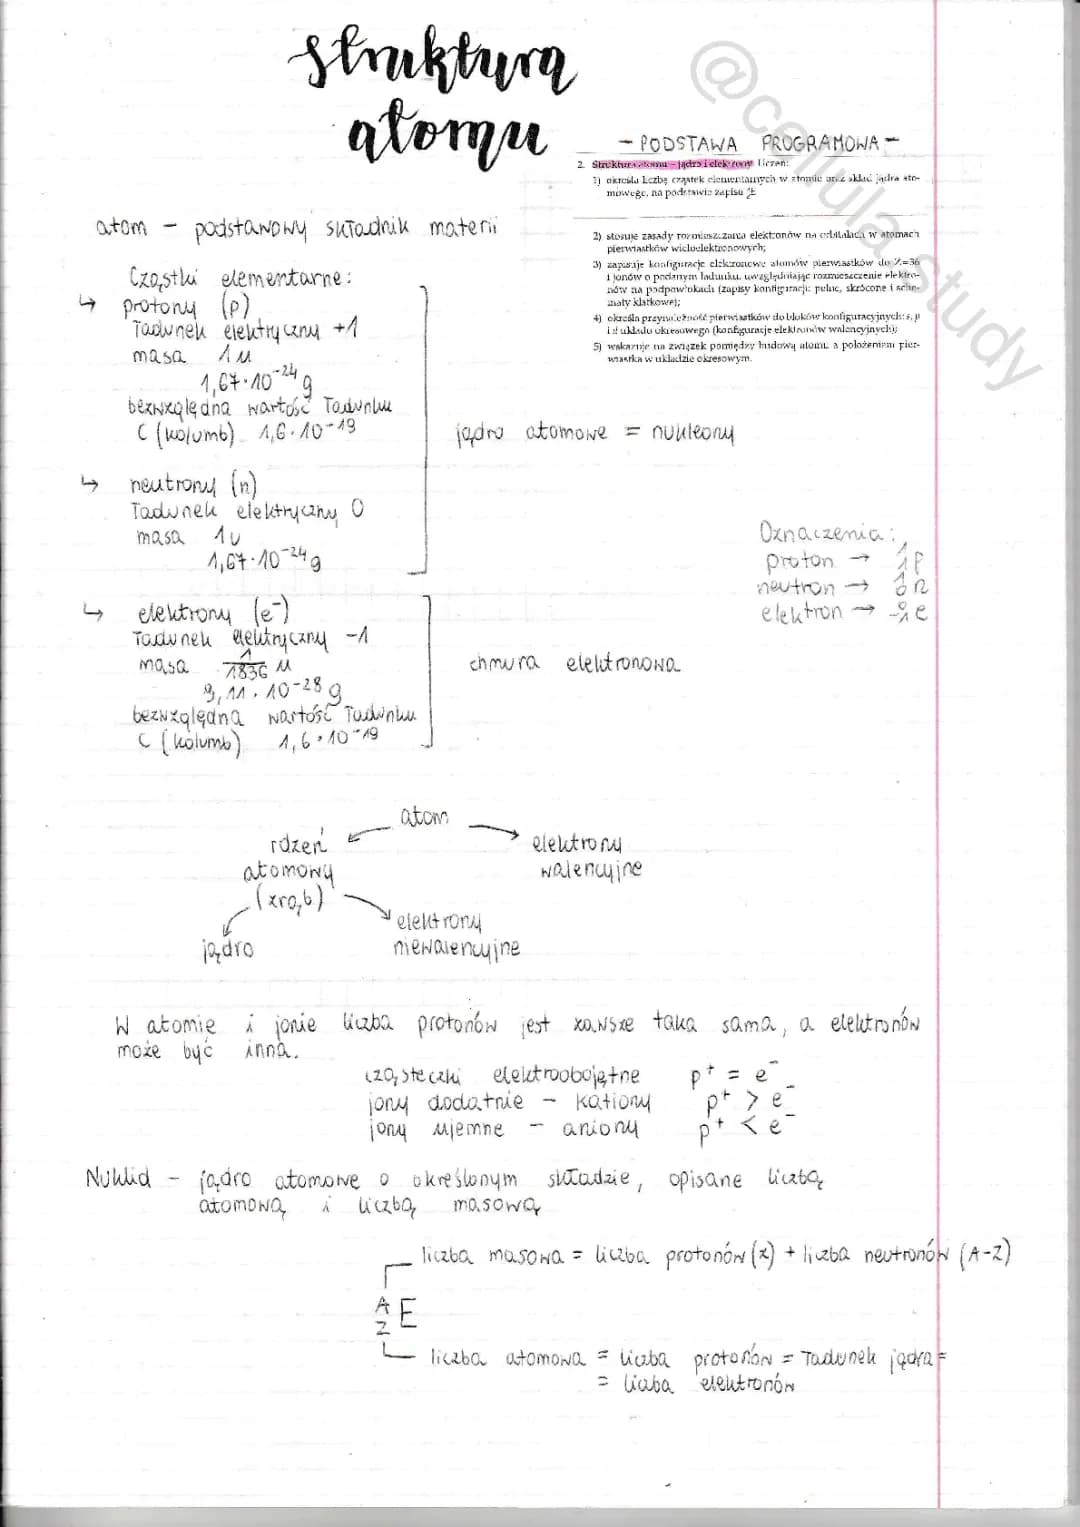 struktura
atomu
@cellula.study
- PODSTAWA PROGRAMOWA -
2. Struktura atomu – jądro i elektrony. Uczeń:
1) określa liczbę cząstek elementarnych w atomie oraz skład jądra ato-
mowego, na podstawie zapisu
2) stosuje zasady rozmieszczania elektronów na orbitalach w atomach
pierwiastków wieloelektronowych;
3) zapisuje konfiguracje elektronowe atomów pierwiastków do Z=36
i jonów o podanym ładunku, uwzględniając rozmieszczenie elektro-
nów na podpowłokach (zapisy konfiguracji: pełne, skrócone i sche-
maty klatkowe);
4) określa przynależność pierwiastków do bloków konfiguracyjnych: s, p
i d układu okresowego (konfiguracje elektronów walencyjnych);
5) wskazuje na związek pomiędzy budową atomu a położeniem pier-
wiastka w układzie okresowym.
atom - podstawowy składnik materii
Cząstki elementarne:
↳ protony (p)
ładunek elektryczny +1
masa 1u
1,67·10⁻²⁴ g
bezwzględna wartość ładunku
C (kolumb) 1,6·10⁻¹⁹
jądro atomowe = nukleony
↳ neutrony (n)
ładunek elektryczny 0
masa 1u
1,67·10⁻²⁴ g
Oznaczenia:
proton → ¹₁p
neutron → ¹₀n
elektron → ⁰₋₁e
↳ elektrony (e⁻)
ładunek elektryczny -1
masa 1/1836 u
9,11·10⁻²⁸ g
bezwzględna wartość ładunku
C (kolumb) 1,6·10⁻¹⁹
chmura elektronowa
atom
rdzeń
atomowy
(zrąb)
elektrony
walencyjne
jądro
elektrony
niewalencyjne
W atomie i jonie liczba protonów jest zawsze taka sama, a elektronów
może być inna.
cząsteczki elektroobojętne p⁺ = e⁻
jony dodatnie - kationy p⁺ > e⁻
jony ujemne - aniony p⁺ < e⁻
Nuklid - jądro atomowe o określonym składzie, opisane liczbą
atomową i liczbą masową
liczba masowa = liczba protonów (z) + liczba neutronów (A-Z)
A
Z E
liczba atomowa = liczba protonów = ładunek jądra =
= liczba elektronów